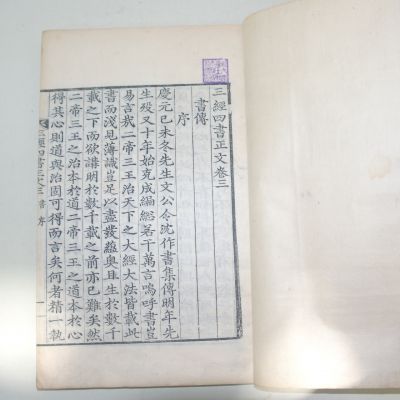 三經四書正文卷三
書傳
序
慶元己未冬先生文公令沈作書集傳明年先
生歿又十年始克成編總若干萬言嗚呼書豈
易言哉二帝三王治天下之大經大法皆載此
書而淺見薄識豈足以盡發蘊奧且生於數千
載之下而欲講明於數千載之前亦已難矣然
二帝三王之治本於道二帝三王之道本於心
得其心則道與治固可得而言矣何者精一執
三經四書正文卷三 書 序